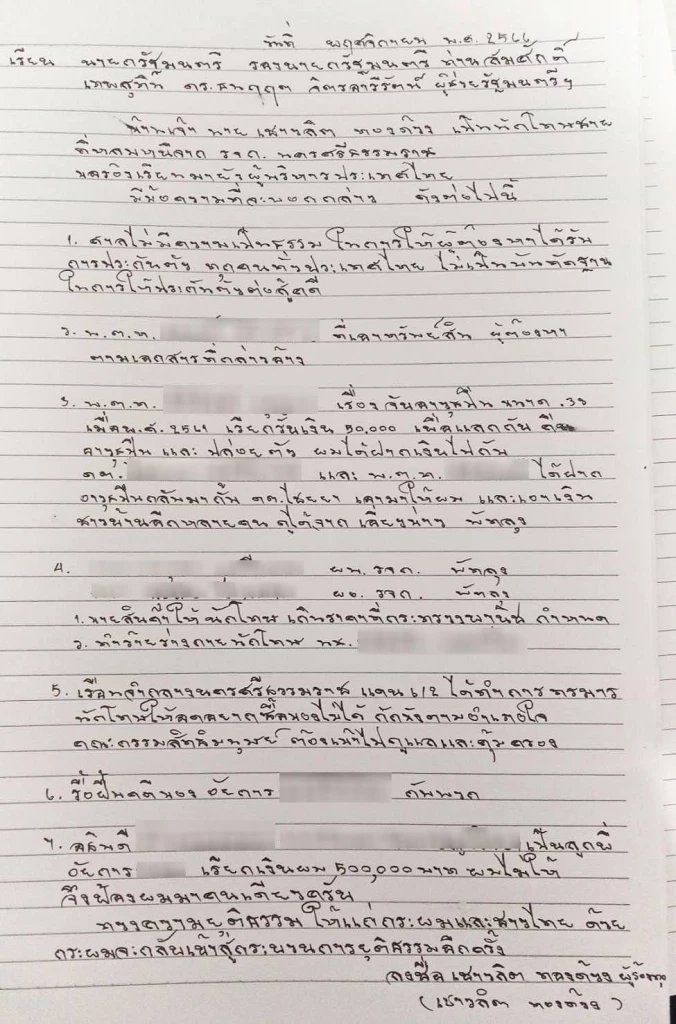 วันที่ พฤศจิกายน พ.ศ. 2566
เรียน นายกรัฐมนตรี รองนายกรัฐมนตรี ท่านสมศักดิ์
เทพสุทิน ดร.ธนกฤต จิตรอารีรัตน์ ผู้ช่วยรัฐมนตรีฯ
ข้าพเจ้า นาย เชาวลิต ทองด้วง เป็นนักโทษชาย
ที่หลบหนีจาก รจก. นครศรีธรรมราช
ขอร้องเรียนมายังผู้บริหารประเทศไทย
มีข้อความที่จะบอกกล่าว ดังต่อไปนี้
1. ศาลไม่มีความเป็นธรรม ในการให้ผู้ต้องหาได้รับ
การประกันตัว ทุกคนทั่วประเทศไทย ไม่เป็นบันทัดฐาน
ในการให้ประกันตัวต่อสู้คดี
2. พ.ต.ท. ที่เอาทรัพย์สิน ผู้ต้องหา
ตามเอกสารที่กล่าวอ้าง
3. พ.ต.ท. เรื่อง จับอาวุธปืน ขนาด .38
เมื่อ พ.ศ. 2561 เรียกรับเงิน 50,000 เพื่อแลกกับ คืน
อาวุธปืน และ ปล่อยตัว ผมได้ฝากเงินไปกับ
ดต. และ พ.ต.ท. ได้ฝาก
อาวุธปืนกลับมากับ ดต.ไชยยา เอามาให้ผม และเอาเงิน
ชาวบ้านอีกหลายคน ดูได้จาก เคเบิลข่าว พัทลุง
4. ผบ. รจก. พัทลุง
ผอ. รจก. พัทลุง
1. ขายสินค้าให้นักโทษ เกินราคาที่กระทรวงพานิชกำหนด
2. ทำร้ายร่างกายนักโทษ นช.
5. เรือนจำกลางนครศรีธรรมราช แดน 6/2 ได้ทำการ ทรมาร
นักโทษให้อดอยากซื้อของไม่ได้ กักขังตามอำเภอใจ
คณะกรรมสิทธิมนุษย์ ต้องเข้าไปดูแลและคุ้มครอง
6. รื้อฟื้นคดีของ อัยการ กับพวก
7. คลิบดี เป็นลูกพี่
อัยการ เรียกเงินผม 500,000 บาท ผมไม่ให้
จึงฟ้องผมมาคนเดียวครับ
ทวงความยุติธรรม ให้แก่กระผมและชาวไทย ด้วย
กระผมจะกลับเข้าสู่กระบวนการยุติธรรมอีกครั้ง
ลงชื่อ เชาวลิต ทองด้วง ผู้ร้องทุกข์
(เชาวลิต ทองด้วง)